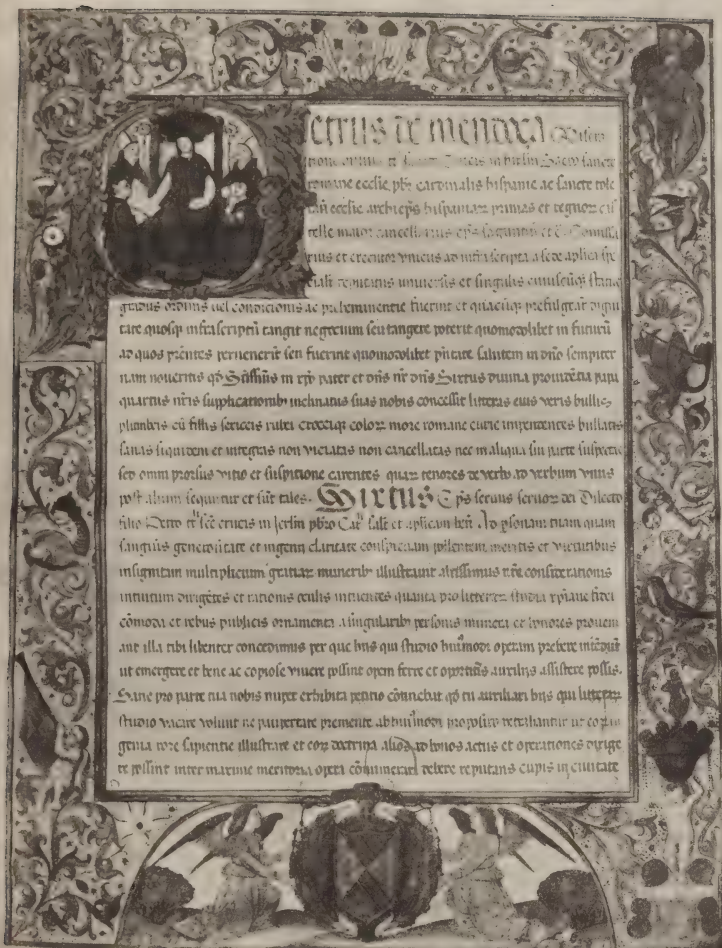 etrus de mendoça
romane ecclie pbr cardinalis hispanie ac sancte tole
tañ ecclie archieps hispaniaꝝ primas et regnoꝝ cas
telle maior cancellarius eps segantinus et
rius et executor vnicus ad infrascripta a sede aplica spe
cialit deputatus vniuersis et singulis cuiuscũqꝫ status
gradus ordinis uel condicionis ac preheminentie fuerint et quacũqꝫ prefulgeãt digni
tate quosqꝫ infrascriptũ tangit negocium seu tangere poterit quomodolibet in futurũ
ad quos pñtes peruenerit seu fuerint quomodolibet pñtate salutem in dño sempiter
nam noueritis qd Sctissimus in xpo pater et dñs nr̃ dñs Sixtus diuina prouidẽtia papa
quartus nr̃is supplicationibꝫ inclinatus suas nobis concessit litteras eius veris bullis
plumbeis cũ fillis sericeis rubei croceiqꝫ coloꝝ more romane curie impendentes bullatis
sanas siquidem et integras non viciatas non cancellatas nec in aliqua sui parte suspectas
sed omni prorsus vitio et suspitione carentes quaꝝ tenores de verbo ad verbum vnius
post alium sequũtur et sũt tales. Sixtus Eps seruus seruoꝝ dei Dilecto
filio Petro tt scẽ crucis in Jerlm pbro Car salt et aplicam beñ. Ad psonam tuam quam
sanguinis generositate et ingenii claritate conspicuam pollentem meritis et virtutibus
insignitam multiplicum gratiaꝝ muneribꝫ illustrauit altissimus nr̃e considerationis
intuitum dirigẽtes et rationis oculis intuentes quanta pro litteraꝝ studia xpiane fidei
cõmoda et rebus publicis ornamenta a singularibꝫ personis munera et honores proueni
ant illa tibi libenter concedimus per que hiis qui studio huiᵘmodi operam prebere intẽdũt
ut emergere et bene ac copiose viuere possint opem ferre et oportunis auxiliis assistere possis.
Sane pro parte tua nobis nuper exhibita petitio cõtinebat qd tu auxiliari hiis qui litteraꝝ
studio vacare volunt ne paupertate premente ab huiᵘmodi proposito retrahantur ut eoꝝ in
genia rore sapientie illustrare et eoꝝ doctrina alios ad bonos actus et operationes dirige
re possint inter maxime meritoria opera cõnumerari debere reputans cupis in ciuitate